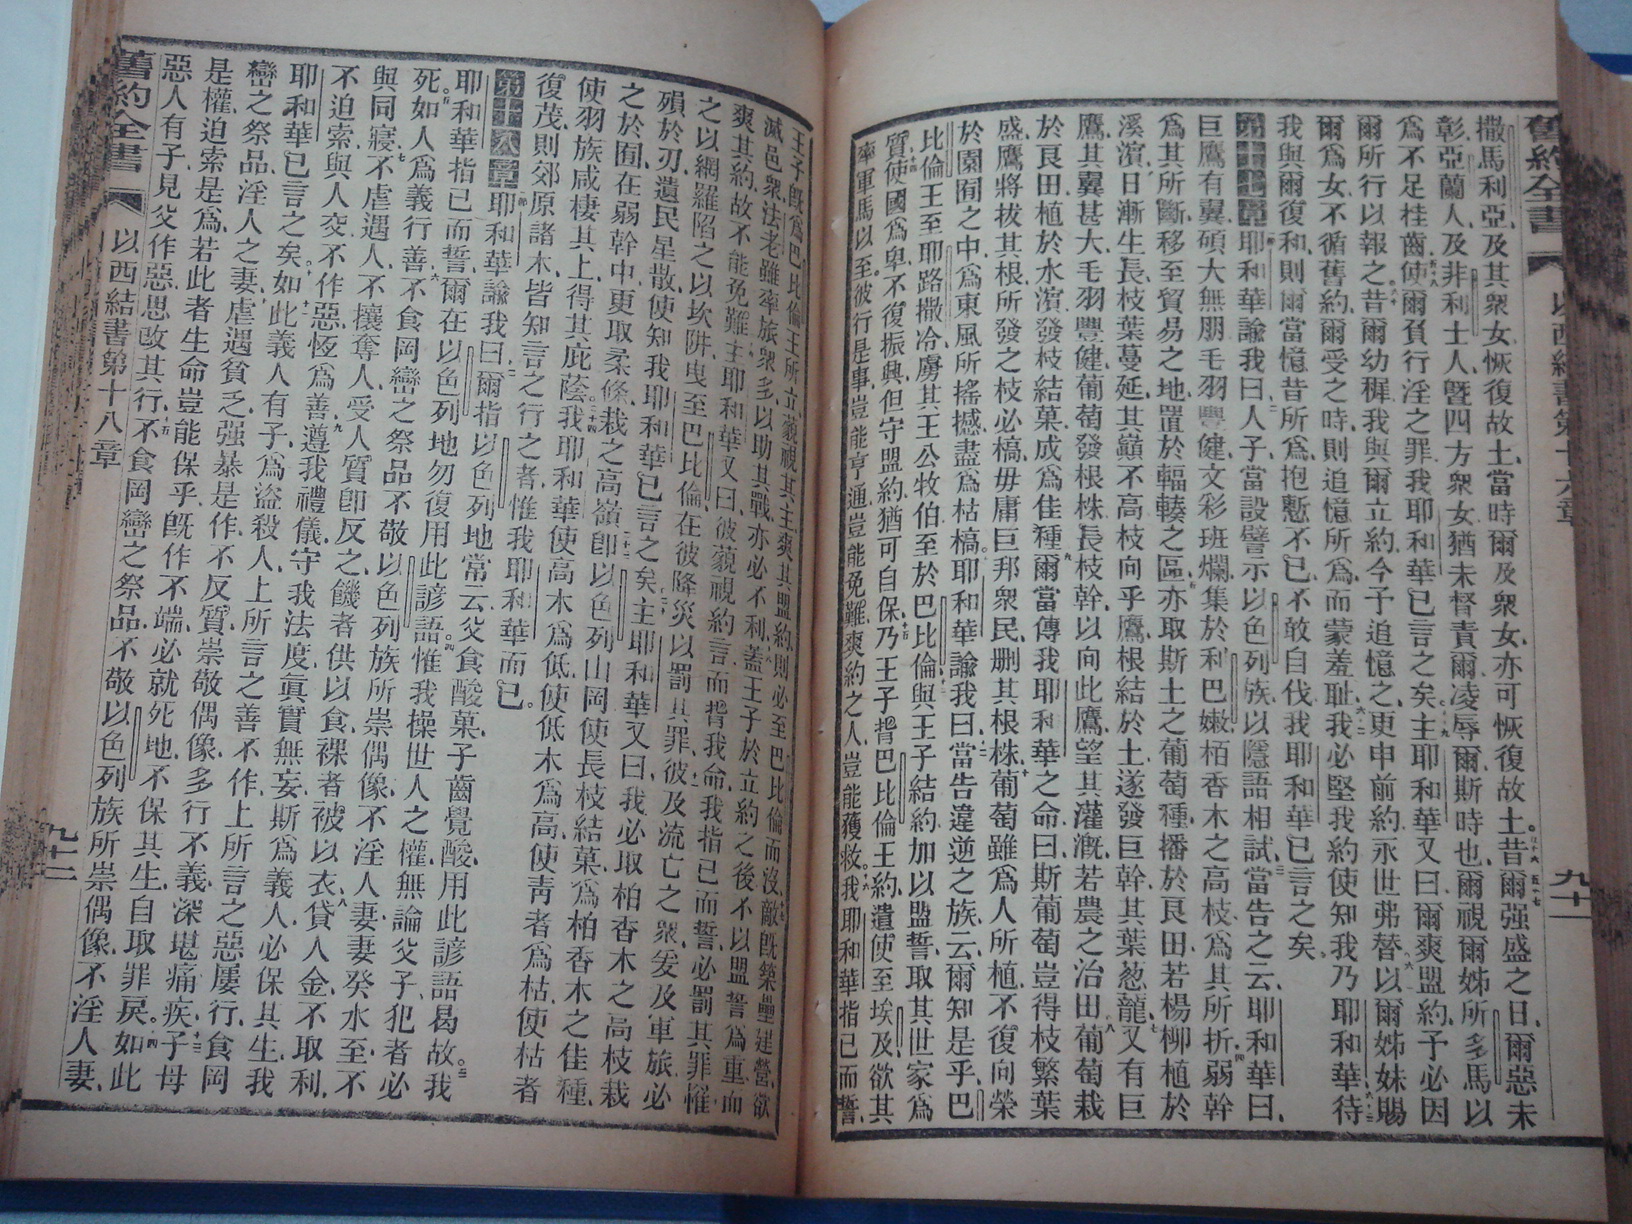 舊約全書 以西結書第十六章 九十一
撒馬利亞及其衆女恢復故土當時爾及衆女亦可恢復故土昔爾强盛之日爾惡未
彰亞蘭人及非利士人曁四方衆女猶未督責爾凌辱爾斯時也爾視爾姊所多馬以
爲不足挂齒使爾負行淫之罪我耶和華已言之矣主耶和華又曰爾爽盟約予必因
爾所行以報之昔爾幼穉我與爾立約今予追憶之更申前約永世弗替以爾姊妹賜
爾爲女不循舊約爾受之時則追憶所爲而蒙羞耻我必堅我約使知我乃耶和華待
我與爾復和則爾當憶昔所爲抱慙不已不敢自伐我耶和華已言之矣
第十七章耶和華諭我曰人子當設譬示以色列族以隱語相試當告之云耶和華曰
巨鷹有翼碩大無朋毛羽豐健文彩班爛集於利巴嫩栢香木之高枝爲其所折弱幹
爲其所斷移至貿易之地置於輻輳之區亦取斯土之葡萄種播於良田若楊柳植於
溪濱日漸生長枝葉蔓延其巓不高枝向乎鷹根結於土遂發巨幹其葉葱蘢又有巨
鷹其翼甚大毛羽豐健葡萄發根株長枝幹以向此鷹望其灌漑若農之治田葡萄栽
於良田植於水濱發枝結菓成爲佳種爾當傳我耶和華之命曰斯葡萄豈得枝繁葉
盛鷹將拔其根所發之枝必槁毋庸巨邦衆民刪其根株葡萄雖爲人所植不復向榮
於園囿之中爲東風所搖撼盡爲枯槁耶和華諭我曰當告違逆之族云爾知是乎巴
比倫王至耶路撒冷虜其王公牧伯至於巴比倫與王子結約加以盟誓取其世家爲
質使國爲卑不復振興但守盟約猶可自保乃王子背巴比倫王約遣使至埃及欲其
率軍馬以至彼行是事豈能亨通豈能免難爽約之人豈能獲救我耶和華指己而誓
王子旣爲巴比倫王所立藐視其主爽其盟約則必至巴比倫而沒敵旣築壘建營欲
滅邑衆法老雖率旅衆多以助其戰亦必不利蓋王子於立約之後不以盟誓爲重而
爽其約故不能免難主耶和華又曰彼藐視約言而背我命我指己而誓必罰其罪惟
之以網羅陷之以坎阱曳至巴比倫在彼降災以罰其罪彼及流亡之衆爰及軍旅必
殞於刃遺民星散使知我耶和華已言之矣主耶和華又曰我必取柏香木之高枝栽
之於囿在弱幹中更取柔條栽之高嶺卽以色列山岡使長枝結菓爲柏香木之佳種
使羽族咸棲其上得其庇蔭我耶和華使高木爲低使低木爲高使靑者爲枯使枯者
復茂則郊原諸木皆知言之行之者惟我耶和華而已
第十八章耶和華諭我曰爾指以色列地常云父食酸菓子齒覺酸用此諺語曷故我
耶和華指己而誓爾在以色列地勿復用此諺語惟我操世人之權無論父子犯者必
死如人爲義行善不食岡巒之祭品不敬以色列族所崇偶像不淫人妻妻癸水至不
與同寢不虐遇人不攘奪人受人質卽反之饑者供以食裸者被以衣貸人金不取利
不迫索與人交不作惡恆爲善遵我禮儀守我法度眞實無妄斯爲義人必保其生我
耶和華已言之矣如此義人有子爲盜殺人上所言之善不作上所言之惡屢行食岡
巒之祭品淫人之妻虐遇貧乏强暴是作不反質崇敬偶像多行不義深堪痛疾子母
是權迫索是爲若此者生命豈能保乎旣作不端必就死地不保其生自取罪戾如此
惡人有子見父作惡思改其行不食岡巒之祭品不敬以色列族所崇偶像不淫人妻
舊約全書 以西結書第十八章 九十二